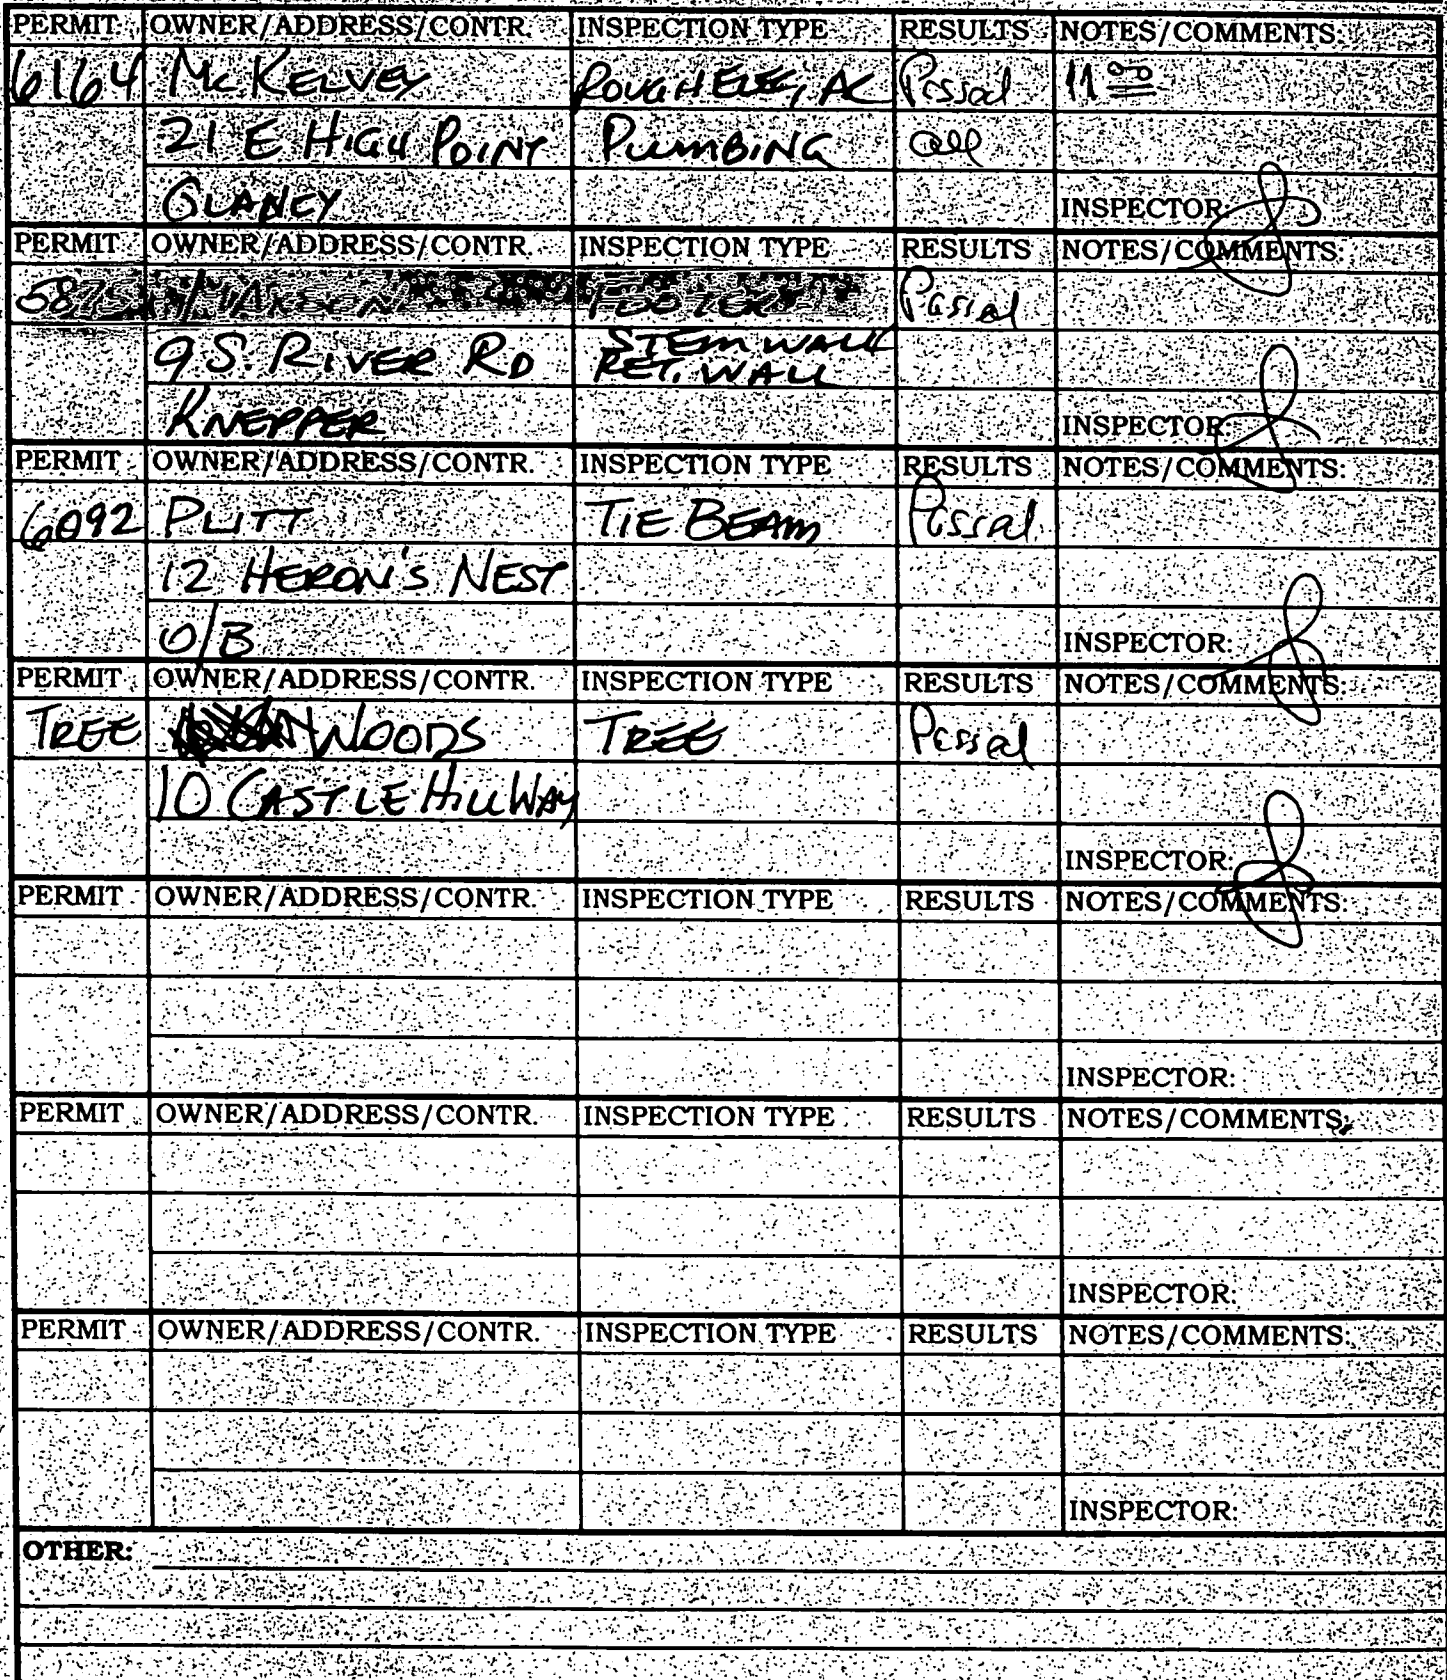 PERMIT OWNER/ADDRESS/CONTR. INSPECTION TYPE RESULTS NOTES/COMMENTS:
6164 McKELVEY ROUGH ELEC, AC Passed 11 00
21 E HIGH POINT PLUMBING all
GLANEY INSPECTOR:
PERMIT OWNER/ADDRESS/CONTR. INSPECTION TYPE RESULTS NOTES/COMMENTS:
5875 FOOTER Passed
9 S. RIVER RD STEMWALL
RET. WALL
KNEPPER INSPECTOR:
PERMIT OWNER/ADDRESS/CONTR. INSPECTION TYPE RESULTS NOTES/COMMENTS:
6092 PLITT TIE BEAM Passed
12 HERON'S NEST
O/B INSPECTOR:
PERMIT OWNER/ADDRESS/CONTR. INSPECTION TYPE RESULTS NOTES/COMMENTS:
TREE WOODS TREE Passed
10 CASTLE HILL WAY
INSPECTOR:
PERMIT OWNER/ADDRESS/CONTR. INSPECTION TYPE RESULTS NOTES/COMMENTS:
INSPECTOR:
PERMIT OWNER/ADDRESS/CONTR. INSPECTION TYPE RESULTS NOTES/COMMENTS:
INSPECTOR:
PERMIT OWNER/ADDRESS/CONTR. INSPECTION TYPE RESULTS NOTES/COMMENTS:
INSPECTOR:
OTHER: